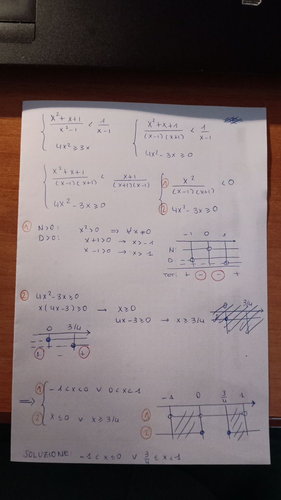 { x²+x+1 / x²-1 < 1 / x-1
4x² ≥ 3x
{ x²+x+1 / (x-1)(x+1) < 1 / x-1
4x²-3x ≥ 0
{ x²+x+1 / (x-1)(x+1) < x+1 / (x+1)(x-1)
4x²-3x ≥ 0
{ ① x² / (x-1)(x+1) < 0
② 4x²-3x ≥ 0
① N>0: x²>0 ⇒ ∀x≠0
D>0: x+1>0 → x>-1
x-1>0 → x>1
-1 0 1
N:
D:
TOT: + - - +
② 4x²-3x≥0
x(4x-3)≥0 → x≥0
4x-3≥0 → x≥3/4
0 3/4
0 3/4
+ - +
⇒ { ① -1<x<0 ∨ 0<x<1
② x≤0 ∨ x≥3/4
-1 0 3/4 1
①
②
SOLUZIONE -1<x<0 ∨ 3/4≤x<1